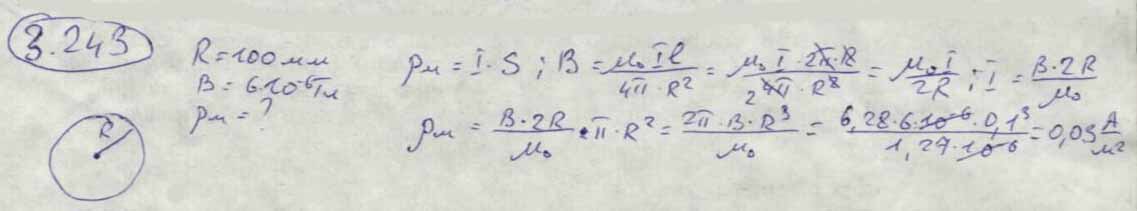 3.243
R = 100 мм
B = 6·10⁻⁶ Тл
pм = ?
R
pм = I · S ; B = μ₀ I l / 4π · R² = μ₀ I · 2π · R / 4π · R² 2 = μ₀ I / 2R ; I = B · 2R / μ₀
pм = B · 2R / μ₀ · π · R² = 2π · B · R³ / μ₀ = 6,28 · 6 · 10⁻⁶ · 0,1³ / 1,27 · 10⁻⁶ = 0,03 А/м²